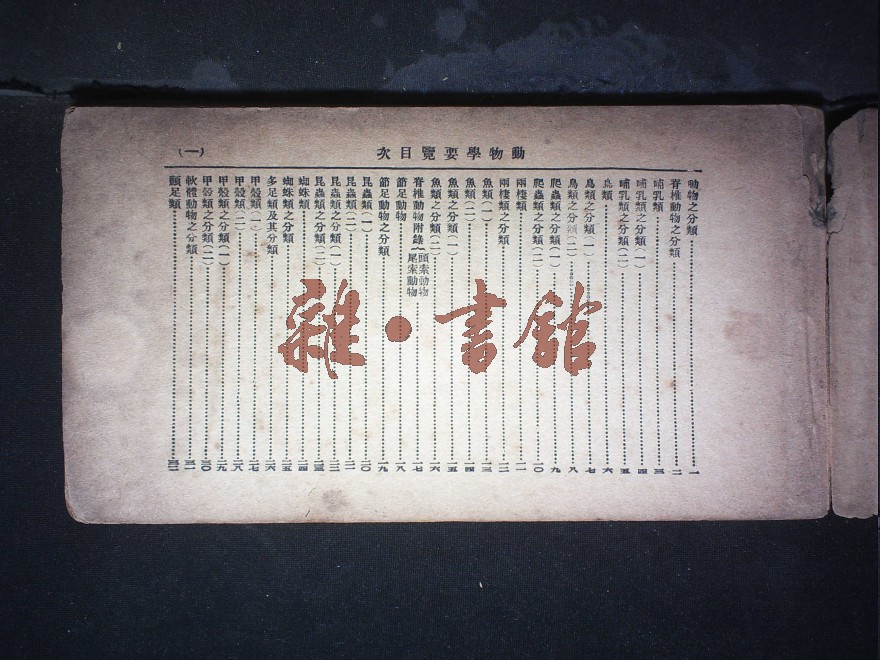 動物學要覽目次
(一)
動物之分類 一
脊椎動物之分類 二
哺乳類 三
哺乳類之分類(一) 四
哺乳類之分類(二) 五
鳥類 六
鳥類之分類(一) 七
鳥類之分類(二) 八
爬蟲類之分類(一) 九
爬蟲類之分類(二) 一〇
兩棲類 一一
兩棲類之分類 一二
魚類(一) 一三
魚類(二) 一四
魚類之分類(一) 一五
魚類之分類(二) 一六
脊椎動物附錄{頭索動物 尾索動物 一七
節足動物 一八
節足動物之分類 一九
昆蟲類(一) 二〇
昆蟲類(二) 二一
昆蟲類之分類(一) 二二
昆蟲類之分類(二) 二三
蜘蛛類 二四
蜘蛛類之分類 二五
多足類及其分類 二六
甲殼類(一) 二七
甲殼類(二) 二八
甲殼類之分類(一) 二九
甲殼類之分類(二) 三〇
軟體動物之分類 三一
頭足類 三二
雜·書館